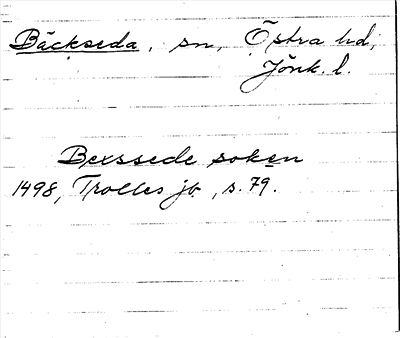 Bäckseda, sn, Östra hd,
Jönk. l.
Bexssede soken
1498, Trolles jb, s. 79.